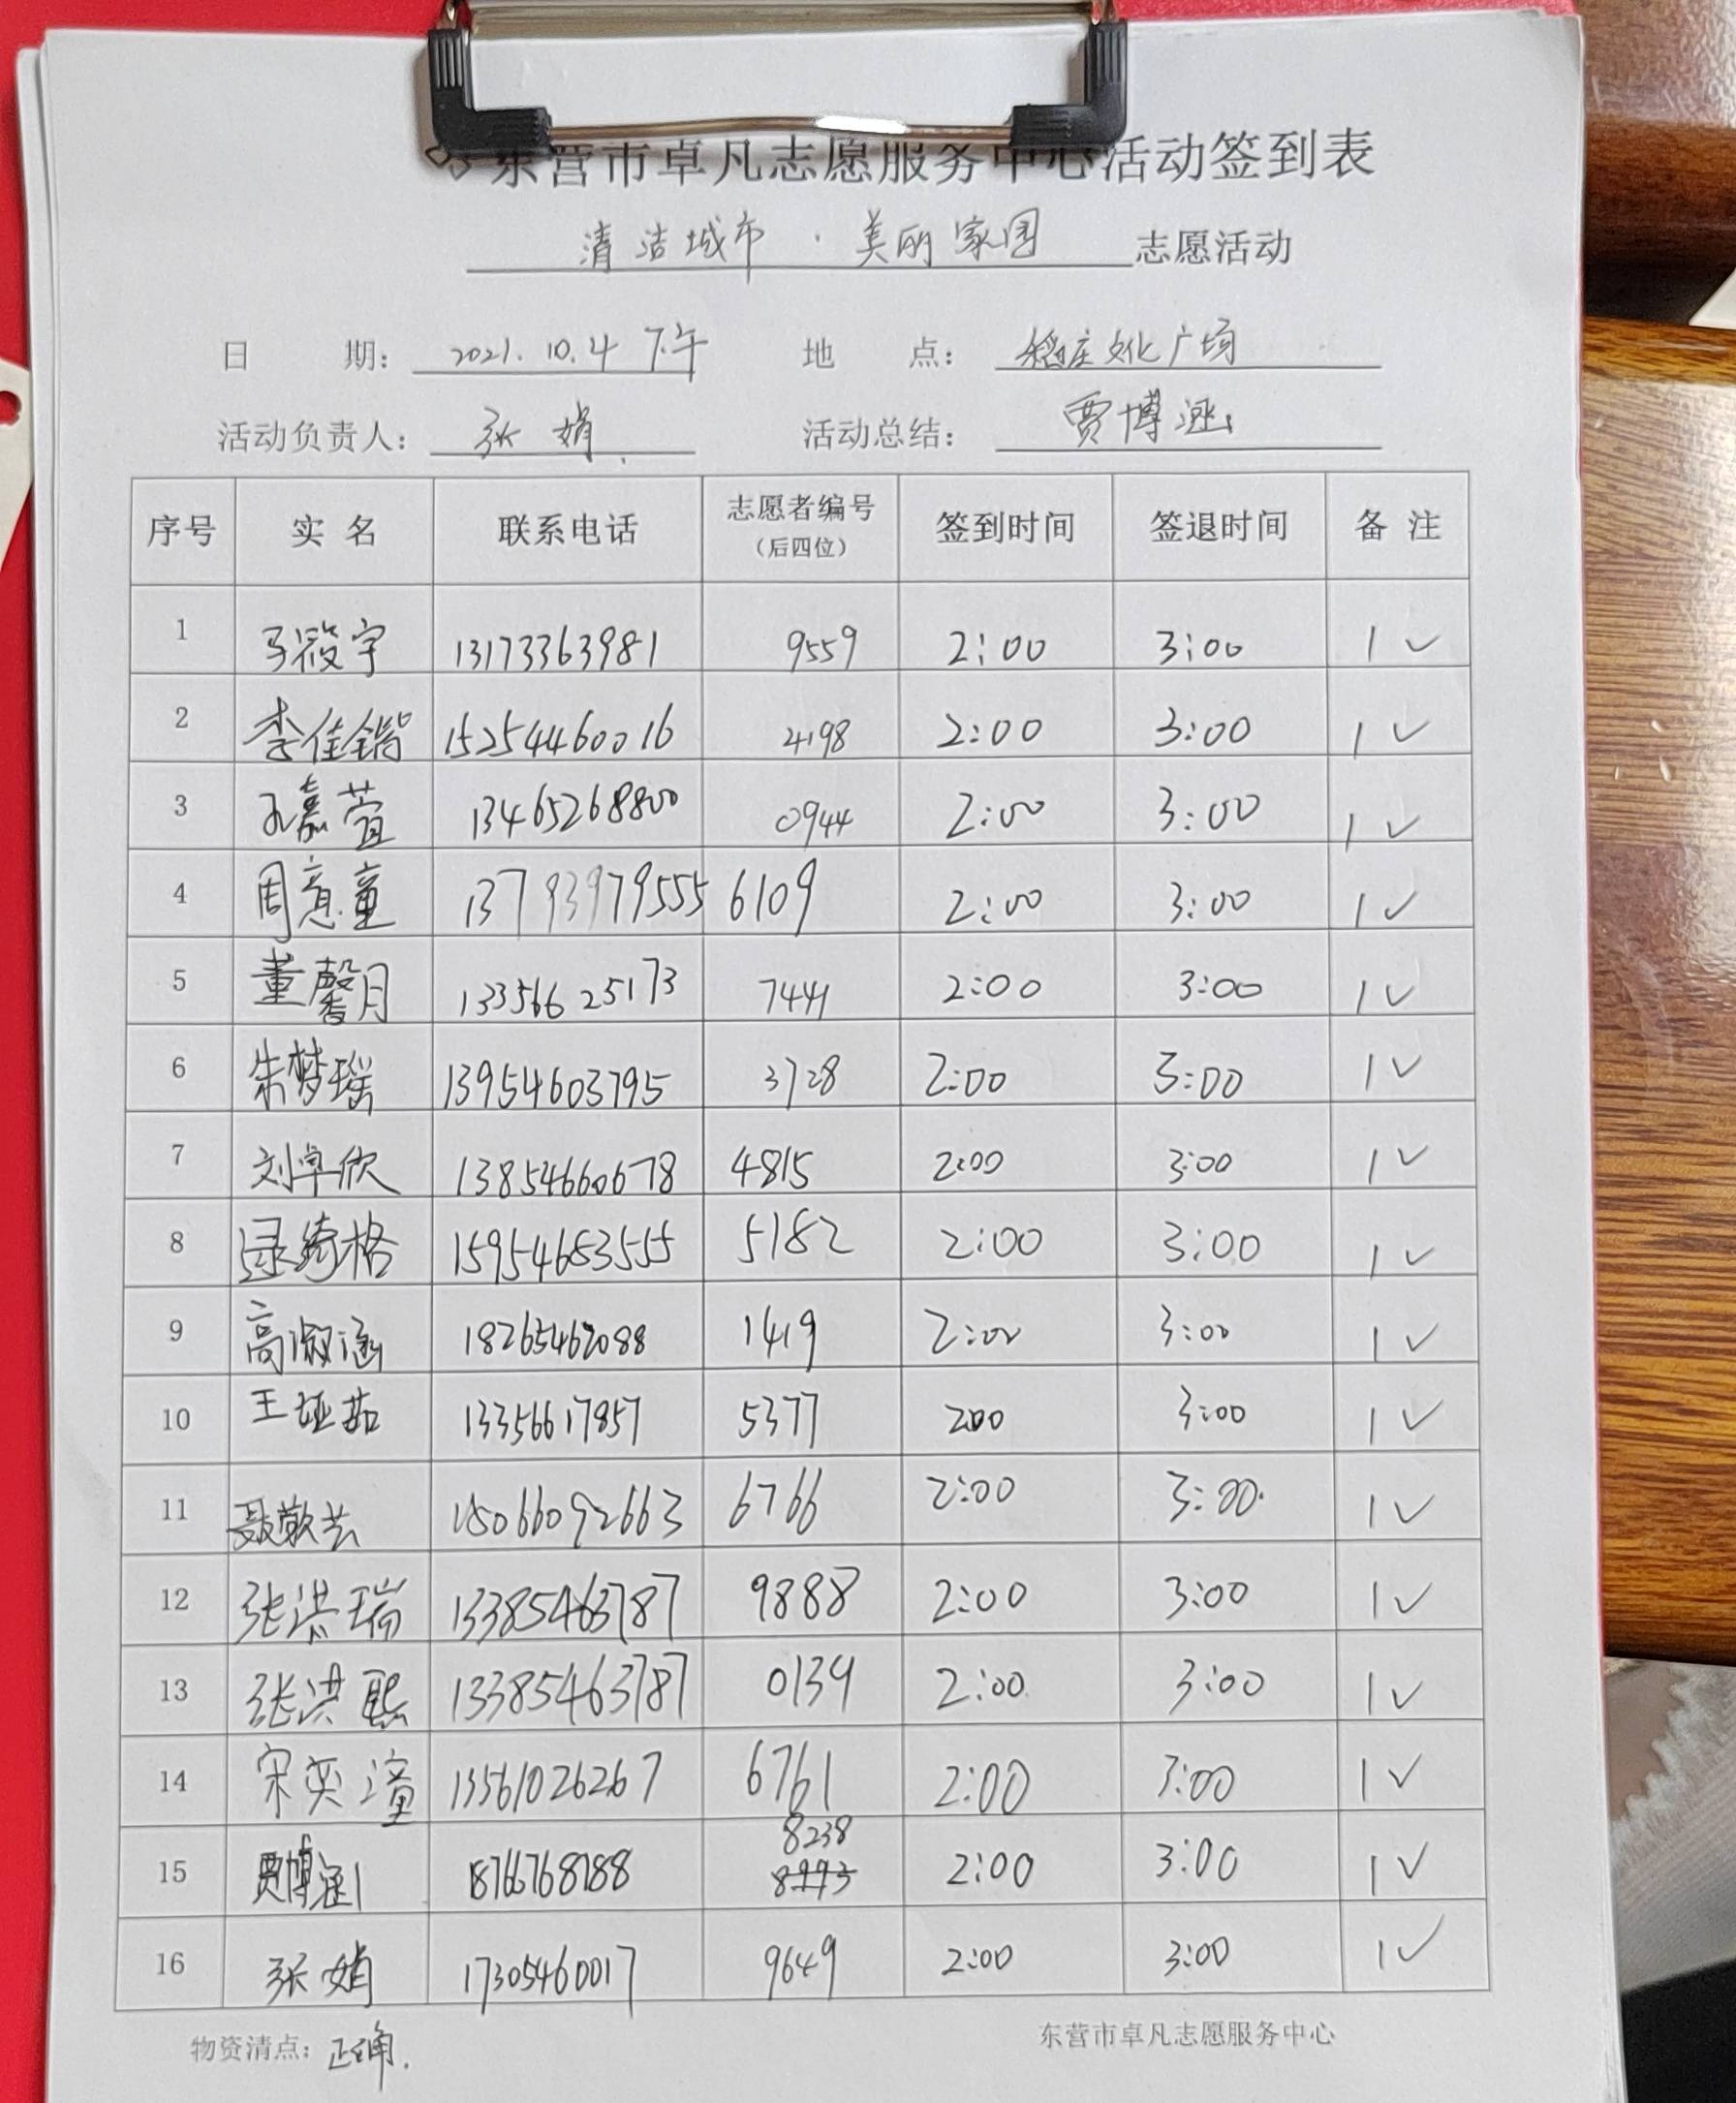 东营市卓凡志愿服务中心活动签到表
清洁城市 · 美丽家园 志愿活动
日 期: 2021.10.4 下午 地 点: 稻庄文化广场
活动负责人: 张娟 活动总结: 贾博涵
序号 实 名 联系电话 志愿者编号 签到时间 签退时间 备 注
(后四位)
1 13173363981 9559 2:00 3:00 1 ✓
2 李佳锴 15254460016 4198 2:00 3:00 1 ✓
3 孔嘉萱 13465268800 0944 2:00 3:00 1 ✓
4 周意童 13793979555 6109 2:00 3:00 1 ✓
5 董馨月 13356625173 7441 2:00 3:00 1 ✓
6 朱梦瑶 13954603795 3728 2:00 3:00 1 ✓
7 刘卓欣 13854660678 4815 2:00 3:00 1 ✓
8 15954653555 5182 2:00 3:00 1 ✓
9 高淑涵 18265462088 1419 2:00 3:00 1 ✓
10 王垭茹 13356617857 5377 2:00 3:00 1 ✓
11 聂敬芸 15066092663 6766 2:00 3:00 1 ✓
12 张洪瑞 13385463787 9888 2:00 3:00 1 ✓
13 张洪熙 13385463787 0139 2:00 3:00 1 ✓
14 宋奕潼 13561026267 6761 2:00 3:00 1 ✓
15 贾博涵 18766768788 8238 2:00 3:00 1 ✓
16 张娟 17305460017 9649 2:00 3:00 1 ✓
物资清点: 正确. 东营市卓凡志愿服务中心